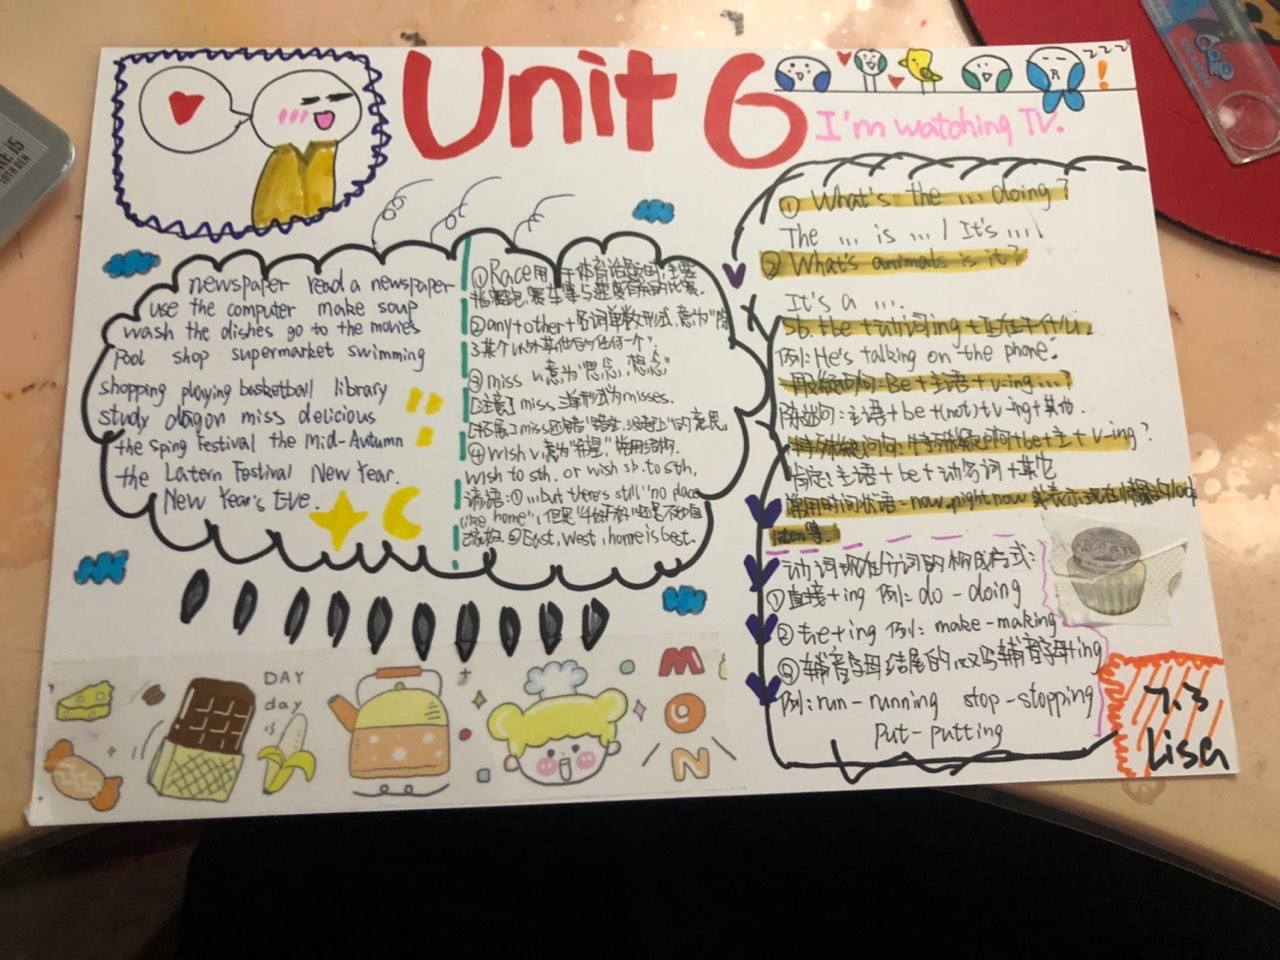 Unit 6
I'm watching TV.
newspaper read a newspaper
use the computer make soup
wash the dishes go to the movies
pool shop supermarket swimming
shopping playing basketball library
study dragon miss delicious
the Sping Festival the Mid-Autumn
the Latern Festival New Year.
New Year's Eve.
①Race用于体育治
指赛跑,赛车等与速度有关的比赛.
②any+other+名词单数形式,意为"除
了某个以外其他的任何一个".
③miss v.意为"思念,想念"
[注意]miss 三单形式为misses.
[拓展]miss还有"错过,没赶上"的意思.
④wish v.意为"希望",常用结构.
wish to sth. or wish sb. to sth.
谚语:①...but there's still "no place
like home",但是
②East, west, home is best.
① What's the ... doing?
The ... is ... / It's ...
② What's animals is it?
It's a ....
sb.+be+动词ing+正在干什么.
例:He's talking on the phone.
一般疑问句:Be+主语+v-ing...?
陈述句:主语+be+(not)+v-ing+其他.
特殊疑问句:特殊疑问词+be+主+v-ing?
肯定:主语+be+动名词+其它
常用时间状语-now, right now 或表示现在 look
listen等
动词现在分词的构成方式:
①直接+ing 例:do-doing
②去e+ing 例:make-making
③辅音字母结尾的双写辅音字母+ing
例:run-running stop-stopping
put-putting
DAY
day
is
MON
7.3
Lisa